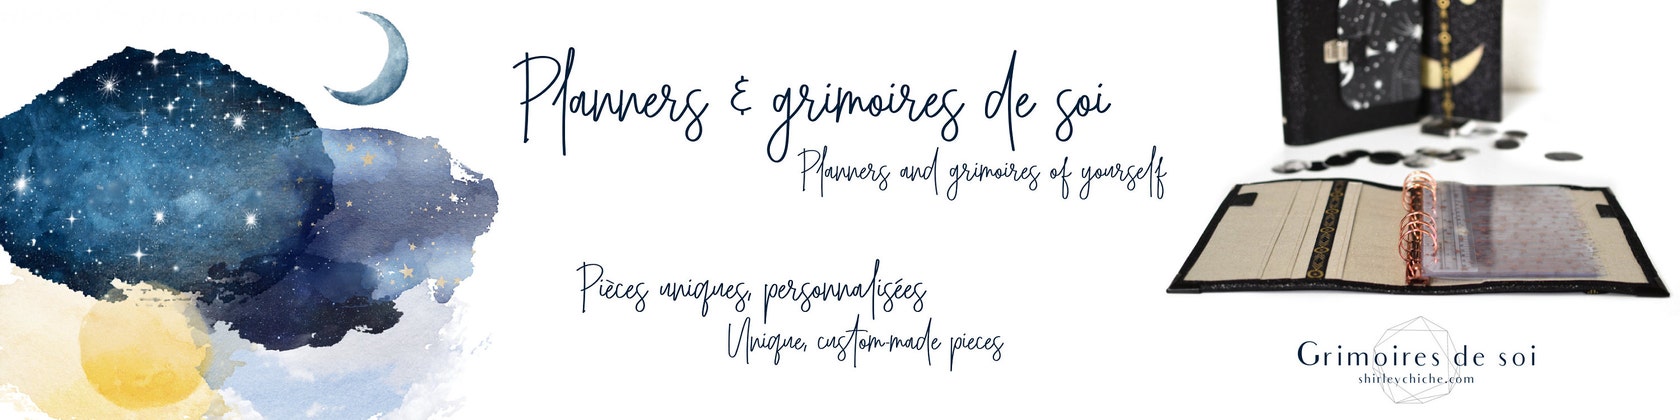 Planners & grimoires de soi
Planners and grimoires of yourself
Pièces uniques, personnalisées
Unique, custom-made pieces
Grimoires de soi
shirleychiche.com